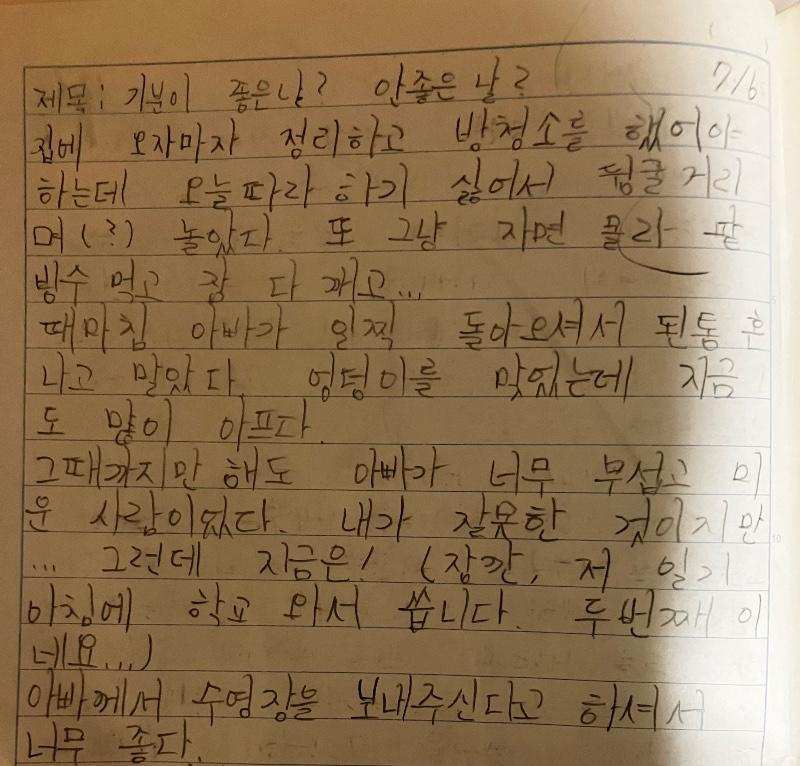 제목: 기분이 좋은날? 안좋은 날? 7/6
집에 오자마자 정리하고 방청소를 했어야
하는데 오늘따라 하기 싫어서 뒹굴거리
며(?) 놀았다. 또 그냥 자면 몰라 팥
빙수 먹고 잠 다 깨고...
때마침 아빠가 일찍 돌아오셔서 된통 혼
나고 말았다. 엉덩이를 맞었는데 지금
도 많이 아프다.
그때까지만 해도 아빠가 너무 무섭고 미
운 사람이었다. 내가 잘못한 것이지만
... 그런데 지금은! (잠깐, 저 일기
아침에 학교 와서 씁니다. 두번째 이
네요...)
아빠께서 수영장을 보내주신다고 하셔서
너무 좋다.